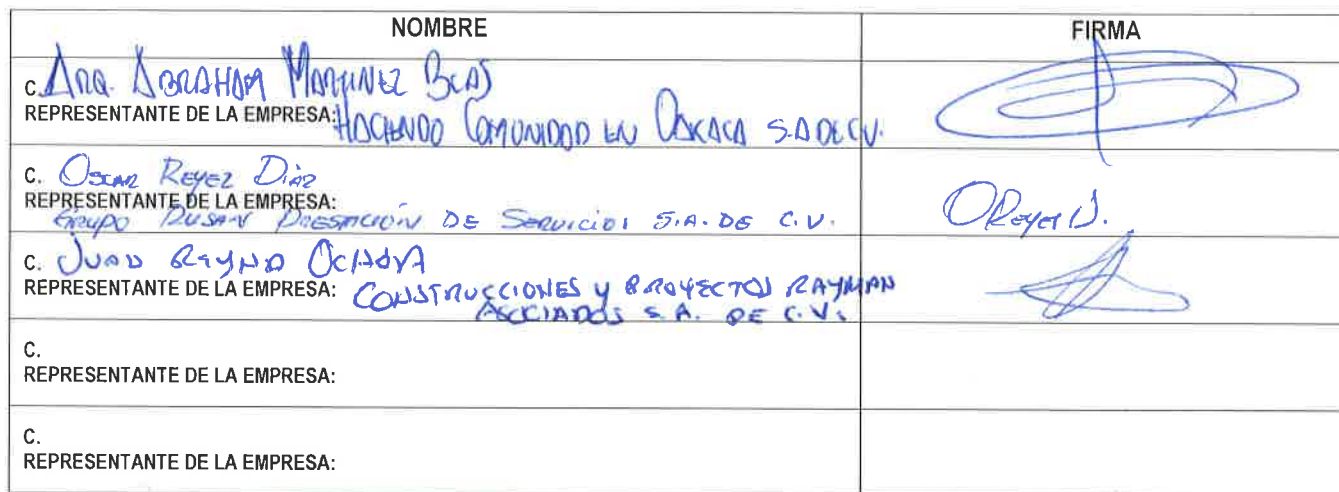 NOMBRE FIRMA
C. ARQ. ABRAHAM MARTINEZ BLAS
REPRESENTANTE DE LA EMPRESA: HACIENDO COMUNIDAD EN OAXACA S.A DE C.V.
C. OSCAR REYEZ DÍAZ
REPRESENTANTE DE LA EMPRESA:
GRUPO DUSAN PRESTACIÓN DE SERVICIOS S.A. DE C.V. OReyesD.
C. JUAN REYNA OCHOA
REPRESENTANTE DE LA EMPRESA: CONSTRUCCIONES Y PROYECTOS RAYMAN
ASOCIADOS S.A. DE C.V.
C.
REPRESENTANTE DE LA EMPRESA:
C.
REPRESENTANTE DE LA EMPRESA: